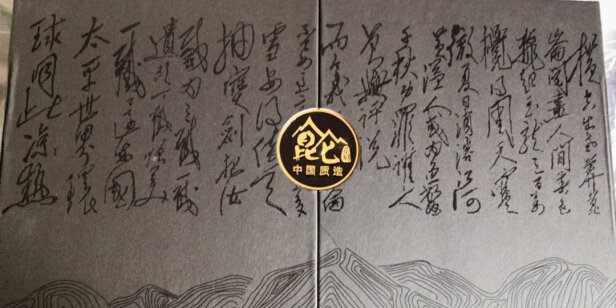 横空出世莽昆
崙阅尽人间春色
飞起玉龙三百万
搅得周天寒
彻夏日消溶江河
横溢人或为鱼鳖
千秋功罪谁人
曾与评说
而今我崙
不要这多
雪安得倚天
抽宝剑把汝
裁为三截一截
遗欧一截赠美
一截还东国
太平世界环
球同此凉热
昆仑
中国质造